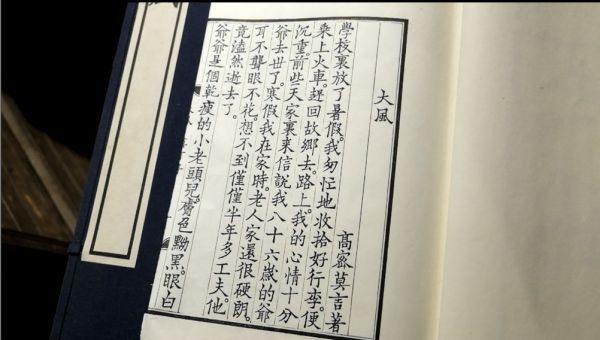 大風
高密莫言著
學校裏放了暑假。我匆忙地收拾好行李。便
乘上火車。趕回故鄉去。路上。我的心情十分
沉重。前些天家裏来信說我八十六歲的爺
爺去世了。寒假我在家時。老人家還很硬朗。
耳不聾眼不花。想不到僅僅半年多工夫。他
竟溘然逝去了。
爺爺是個乾瘦的小老頭兒。膚色黝黑。眼白